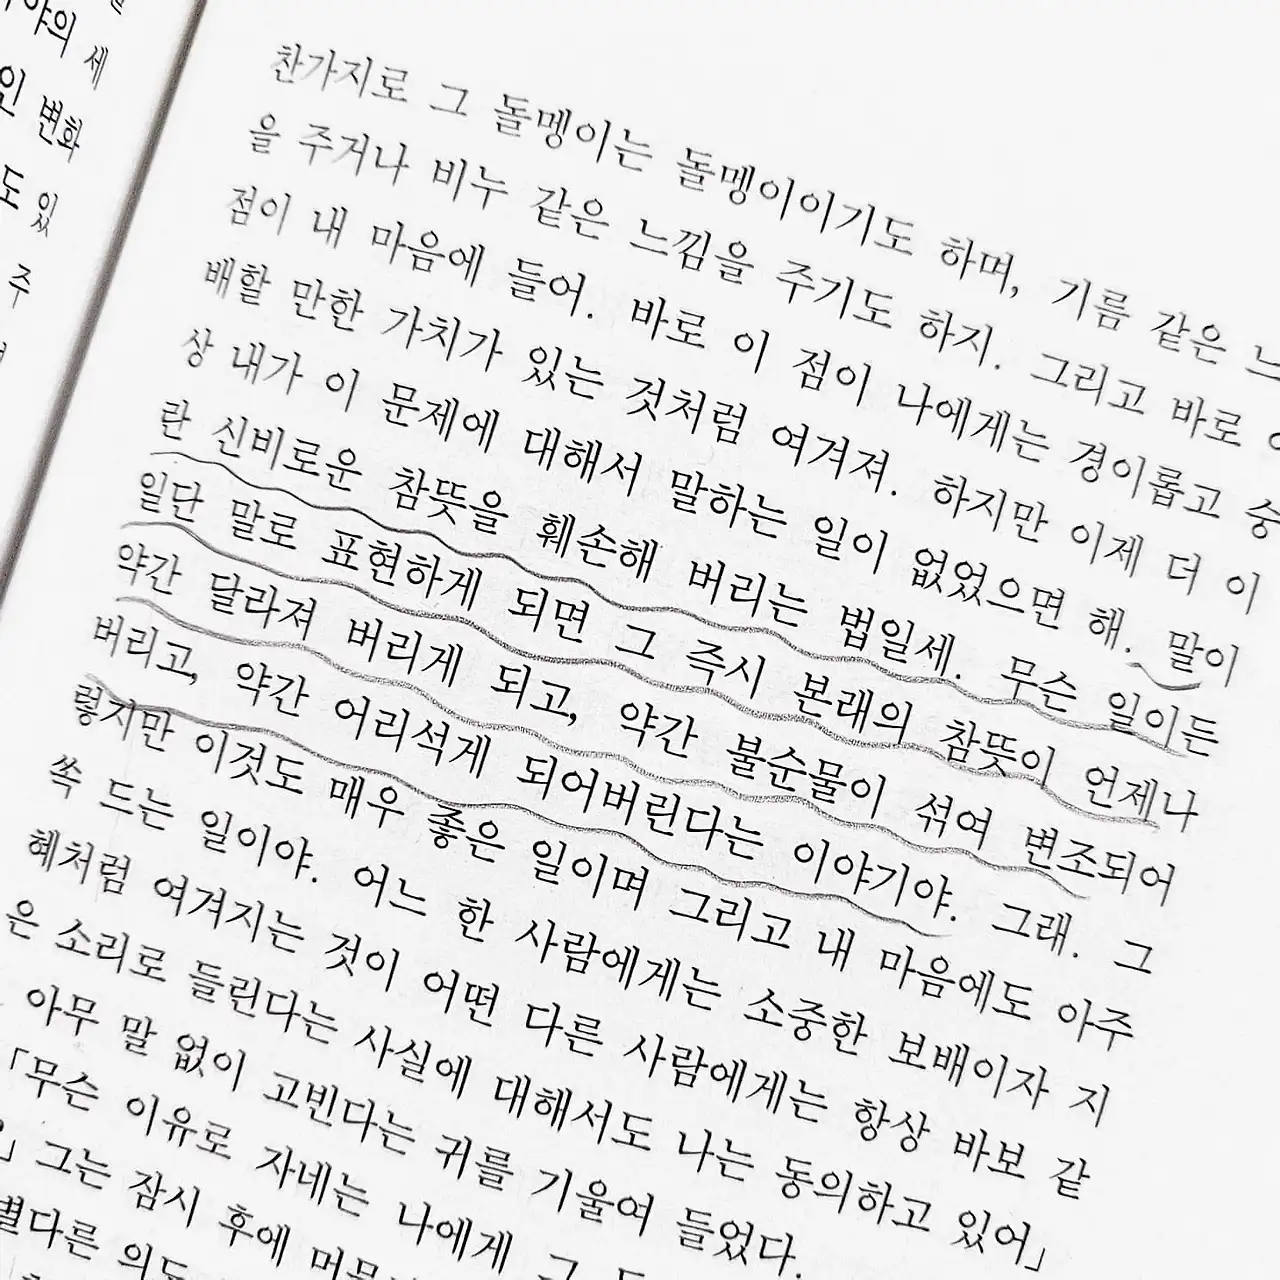 야의 세
인 변화
도 있
주
찬가지로 그 돌멩이는 돌멩이이기도 하며, 기름 같은
을 주거나 비누 같은 느낌을 주기도 하지. 그리고 바로
점이 내 마음에 들어. 바로 이 점이 나에게는 경이롭고 숭
배할 만한 가치가 있는 것처럼 여겨져. 하지만 이제 더 이
상 내가 이 문제에 대해서 말하는 일이 없었으면 해. 말이
란 신비로운 참뜻을 훼손해 버리는 법일세. 무슨 일이든
일단 말로 표현하게 되면 그 즉시 본래의 참뜻이 언제나
약간 달라져 버리게 되고, 약간 불순물이 섞여 변조되어
버리고, 약간 어리석게 되어버린다는 이야기야. 그래. 그
렇지만 이것도 매우 좋은 일이며 그리고 내 마음에도 아주
쏙 드는 일이야. 어느 한 사람에게는 소중한 보배이자 지
혜처럼 여겨지는 것이 어떤 다른 사람에게는 항상 바보 같
은 소리로 들린다는 사실에 대해서도 나는 동의하고 있어」
아무 말 없이 고빈다는 귀를 기울여 들었다.
「무슨 이유로 자네는 나에게 그
」 그는 잠시 후에
별다른